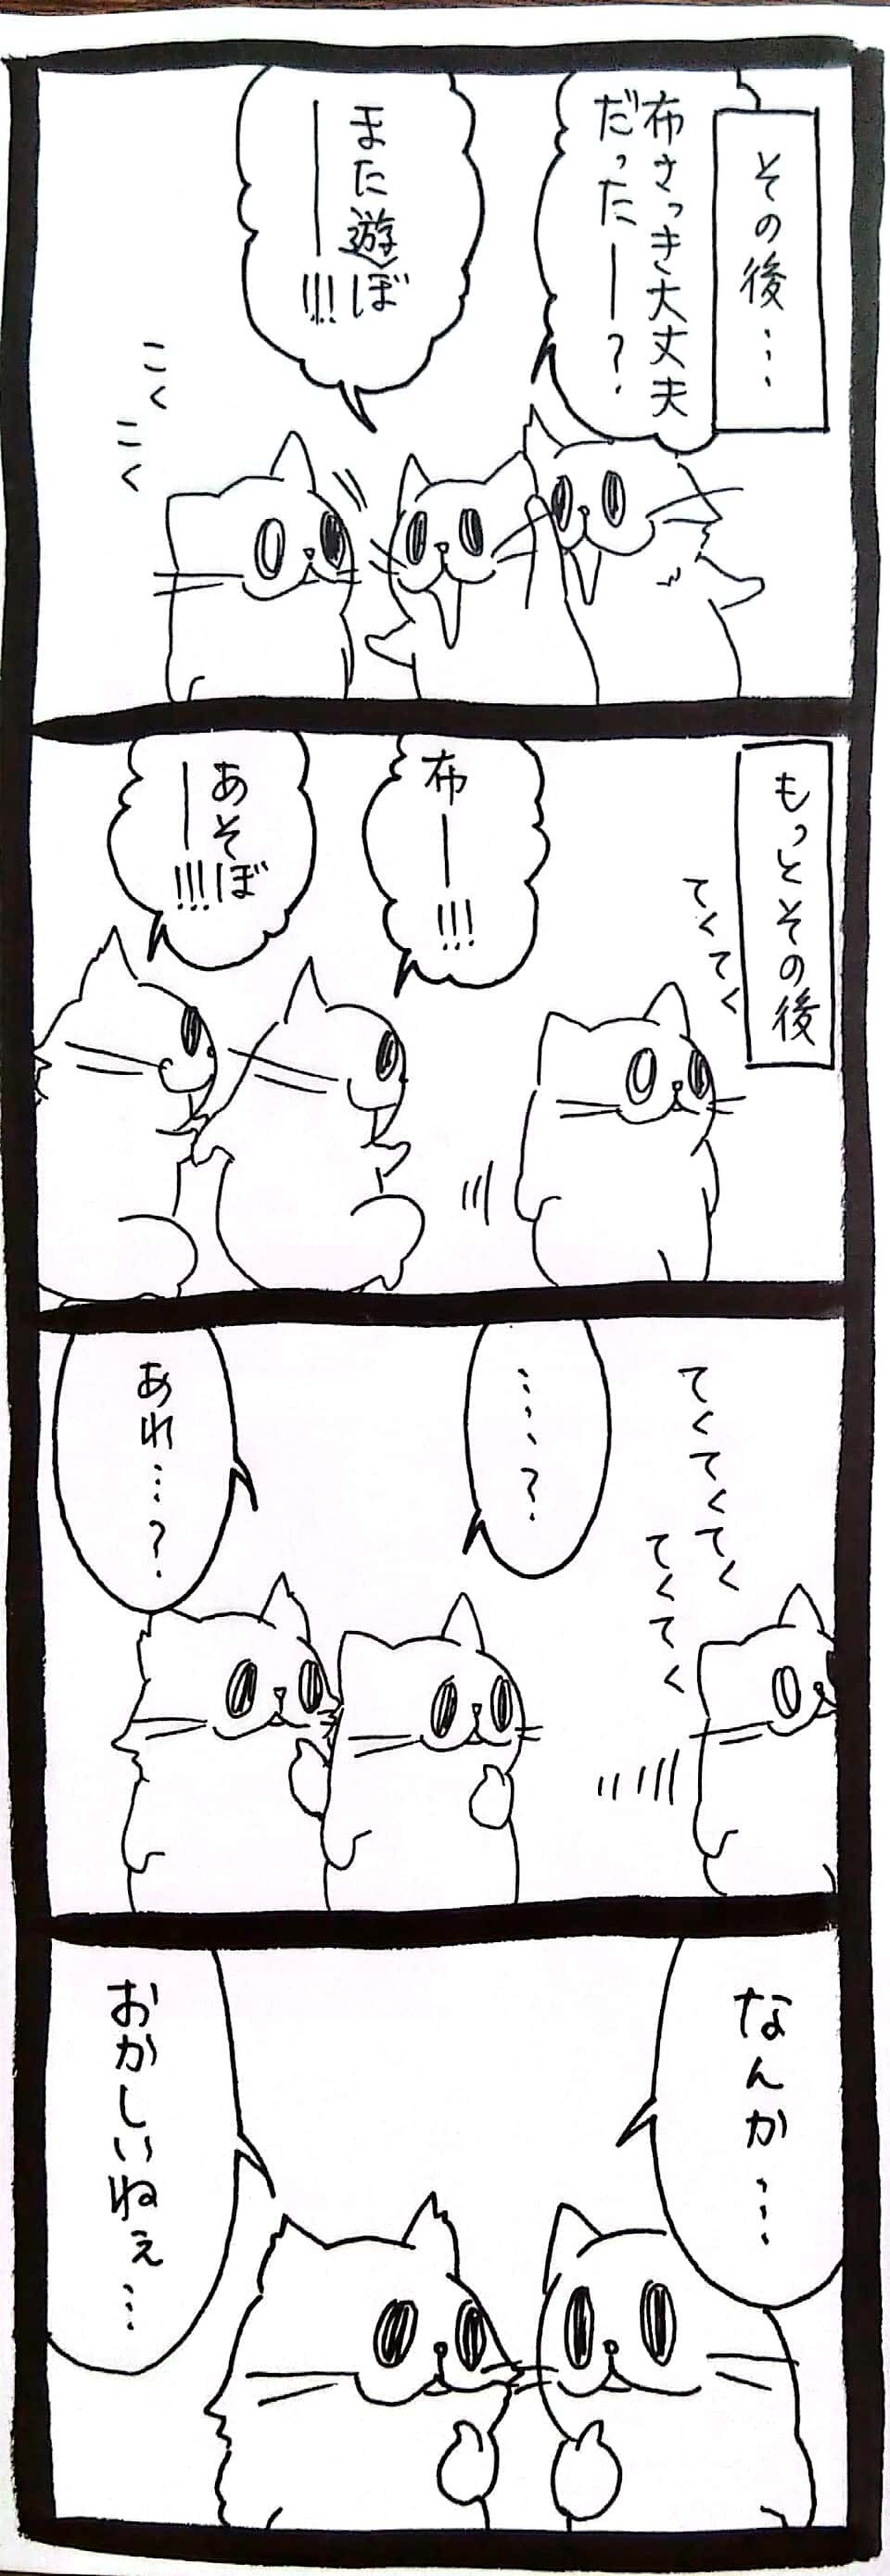 その後…
布さっき大丈夫
だったー?
また遊ぼ
ー!!!
こく
こく
もっとその後
てくてく
布ー!!!
あそぼ
ー!!!
てくてくてく
てくてく
……?
あれ…?
なんか…
おかしいねぇ…